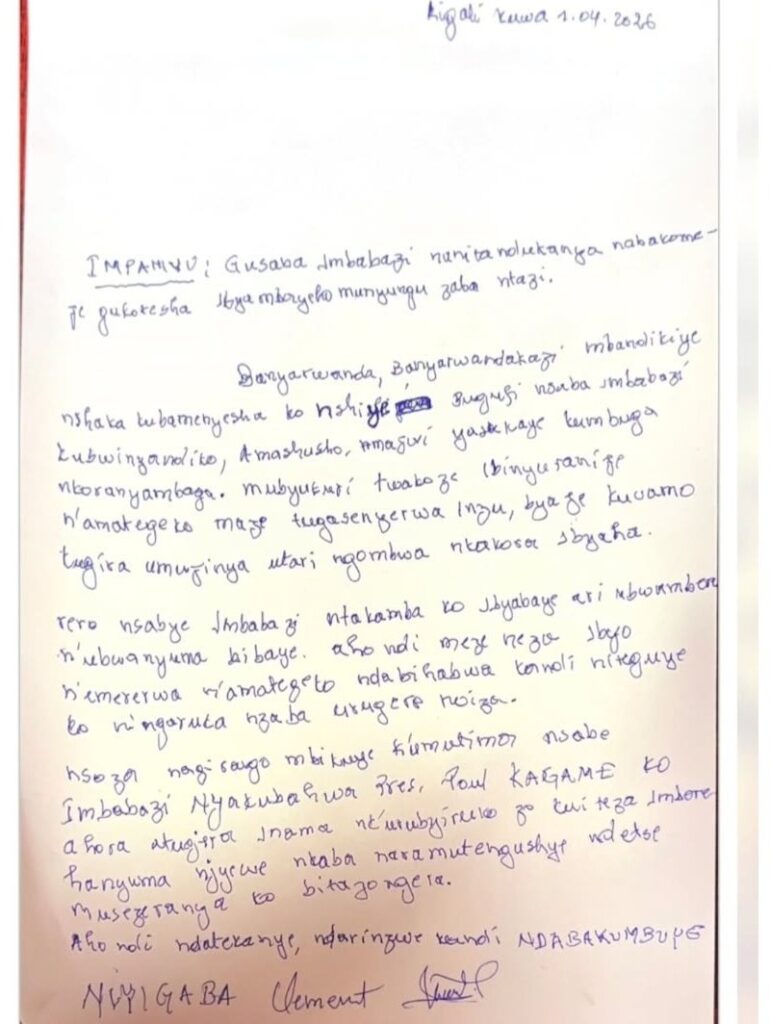 Kigali kuwa 1.04.2026
IMPAMVU: Gusaba Imbabazi nunitandukanya nabakome-
je gukoresha ibyambayeho munyungu zaba ntazi.
Banyarwanda, Banyarwandakazi mbandikiye
nshaka kubamenyesha ko nshiye bugufi nsaba imbabazi
kubwinyandiko, Amashusho, Amajwi yasakaye kumbuga
nkoranyambaga. mubyukuri twakoze ibinyuranije
n'amategeko maze tugasenyerwa inzu, byaje kuvamo
tugira umujinya utari ngombwa nkakora ibyaha.
rero nsabye Imbabazi ntakamba ko ibyabaye ari ubwambere
n'ubwanyuma bibaye. aho ndi meze neza ibyo
n'emererwa n'amategeko ndabihabwa kandi niteguye
ko ningaruka nzaba urugero rwiza.
nsoza nagirango mbikuye k'umutima nsabe
Imbabazi Nyakubahwa Pres. Poul KAGAME ko
ahora atugira inama nk'urubyiruko zo kwiteza imbere
hanyuma njyewe nkaba naramutengushye ndetse
musezeranya ko bitazongera.
Aho ndi ndatekanye, ndarinzwe kandi NDABAKUMBUYE
NIYIGABA Clement